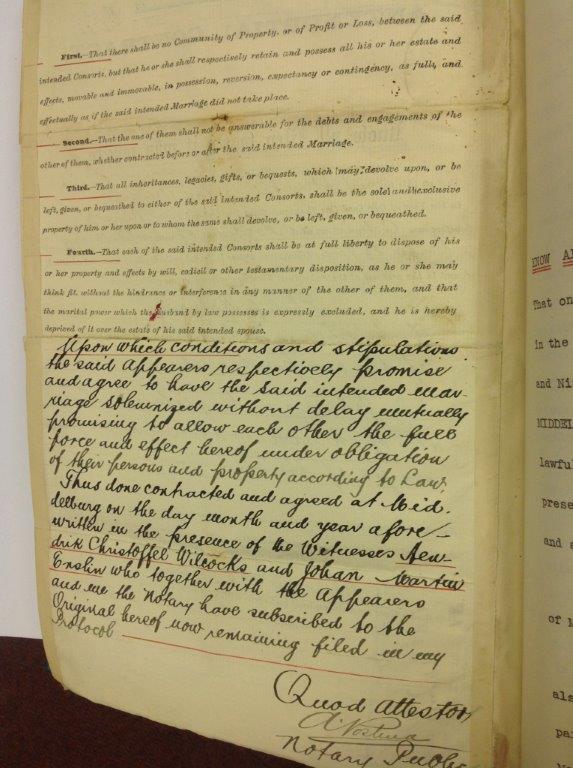 First.—That there shall be no Community of Property, or of Profit or Loss, between the said
intended Consorts, but that he or she shall respectively retain and possess all his or her estate and
effects, movable and immovable, in possession, reversion, expectancy or contingency, as fully and
effectually as if the said intended Marriage did not take place.
Second.—That the one of them shall not be answerable for the debts and engagements of the
other of them, whether contracted before or after the said intended Marriage.
Third.—That all inheritances, legacies, gifts, or bequests, which may devolve upon, or be
left, given, or bequeathed to either of the said intended Consorts, shall be the sole and exclusive
property of him or her upon or to whom the same shall devolve, or be left, given, or bequeathed.
Fourth.—That each of the said intended Consorts shall be at full liberty to dispose of his
or her property and effects by will, codicil or other testamentary disposition, as he or she may
think fit, without the hindrance or interference in any manner of the other of them, and that
the marital power which the husband by law possesses is expressly excluded, and he is hereby
deprived of it over the estate of his said intended spouse.
Upon which conditions and stipulations
the said Appearers respectively promise
and agree to have the said intended mar-
riage solemnized without delay mutually
promising to allow each other the full
force and effect hereof under obligation
of their persons and property according to Law.
Thus done contracted and agreed at Mid-
delburg on the day month and year afore-
written in the presence of the Witnesses Hen-
drik Christoffel Wilcocks and Johan Martin
Enslin who together with the Appearers
and me the Notary have subscribed to the
Original hereof now remaining filed in my
Protocol
Quod Attestor
Notary Public
KNOW AL
That on
in the
and Ni
MIDDEL
lawfu
prese
and a
of M
als
pa